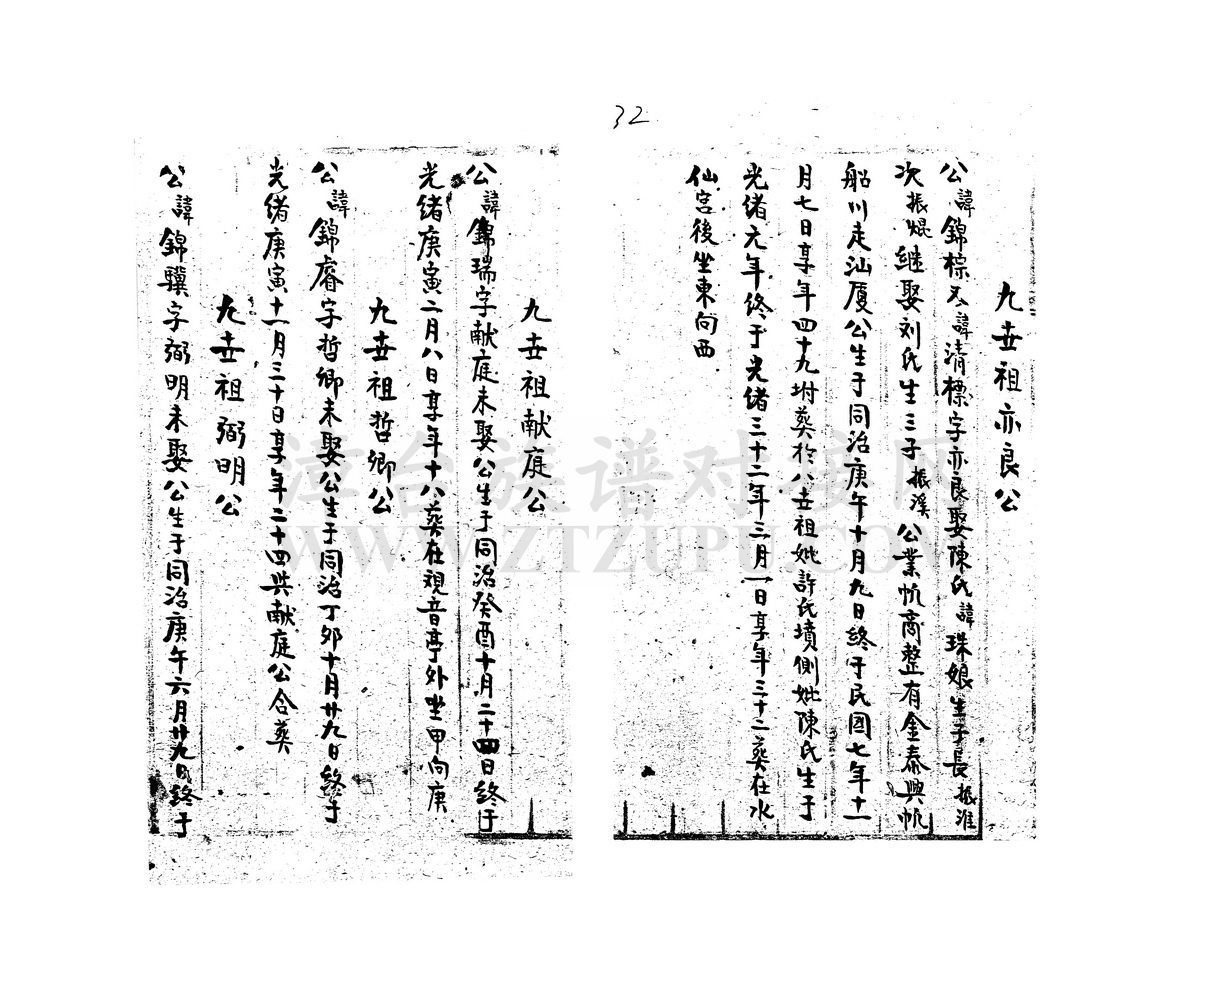 32
九世祖亦良公
公諱錦棕又諱清標字亦良娶陳氏諱珠娘生子長振淮
次振焜继娶刘氏生三子振溪公業帆商整有金泰興帆
船川走汕厦公生于同治庚午十月九日終于民國七年十一
月七日享年四十九坿葬於八世祖妣許氏墳側妣陳氏生于
光绪元年終于光绪三十二年三月一日享年三十二葬在水
仙宮後坐東向西
九世祖献庭公
公諱錦瑞字献庭未娶公生于同治癸酉十月二十四日終于
光绪庚寅二月八日享年十八葬在観音亭外坐甲向庚
九世祖哲卿公
公諱錦睿字哲卿未娶公生于同治丁卯十月廿九日終于
光绪庚寅十一月三十日享年二十四共献庭公合葬
九世祖弼明公
公諱錦驥字弼明未娶公生于同治庚午六月廿九日終于
漳台族谱对接网
WWW.ZTZUPU.COM